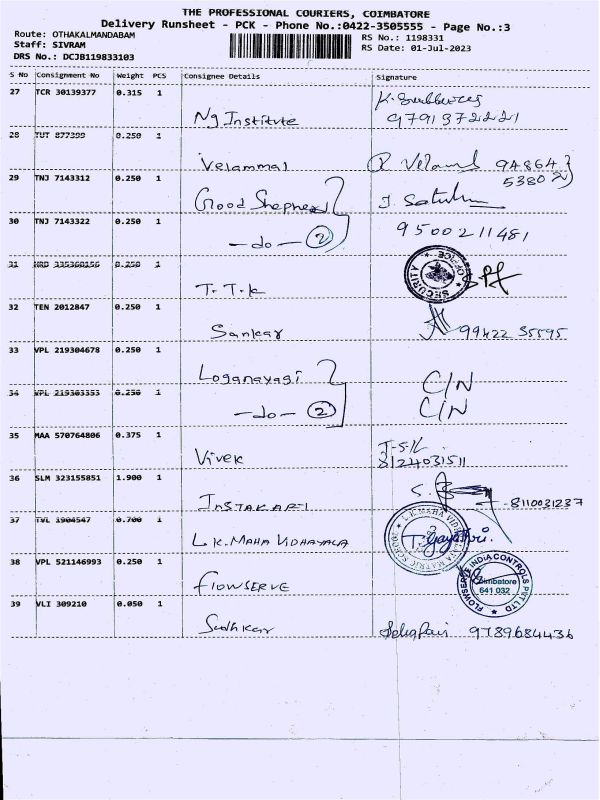 THE PROFESSIONAL COURIERS, COIMBATORE
Delivery Runsheet - PCK - Phone No.:0422-3505555 - Page No.:3
Route: OTHAKALMANDABAM
RS No.: 1198331
Staff: SIVRAM
RS Date: 01-Jul-2023
DRS No.: DCJB119833103
S No Consignment No Weight PCS Consignee Details Signature
27 TCR 30139377 0.315 1
Ng Institute 9791972221
28 TUT 877399 0.250 1
Velammal 94864
53802
29 TNJ 7143312 0.250 1
Good Shepherd
30 TNJ 7143322 0.250 1
-do- 2 9500211481
31 0.250 1
T.T.K SECURITY OFFICE
32 TEN 2012847 0.250 1
Sankar 99422 35595
33 VPL 219304678 0.250 1
Loganayagi C/N
34 VPL 219303353 0.250 1
-do- 2 C/N
35 MAA 570764806 0.375 1
Vivek 8124031511
36 SLM 323155851 1.900 1
INSTAKART 8110031237
37 TVL 1904547 0.700 1
L.K. MAHA VIDHAYALA T. Gayathri.
38 VPL 521146993 0.250 1
FLOWSERVE FLOWSERVE INDIA CONTROLS PVT LTD Coimbatore 641 032
39 VLI 309210 0.050 1
Sudhkar 9789684436